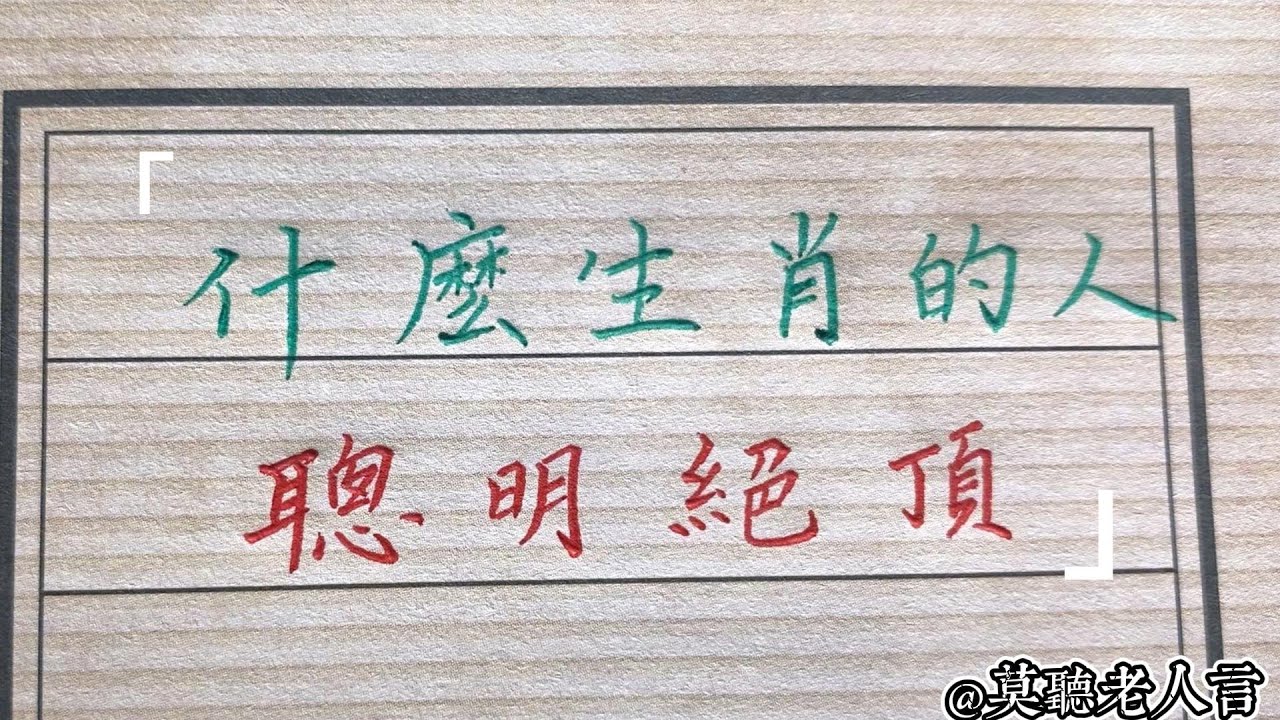 「什麼生肖的人
聰明絕頂」
@莫聽老人言